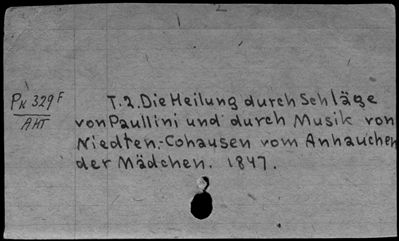 Pk 329 F
AHT
T.2. Die Heilung durch Schläge
von Paullini und durch Musik von
Niedten.-Cohausen vom Anhauchen
der Mädchen. 1847.